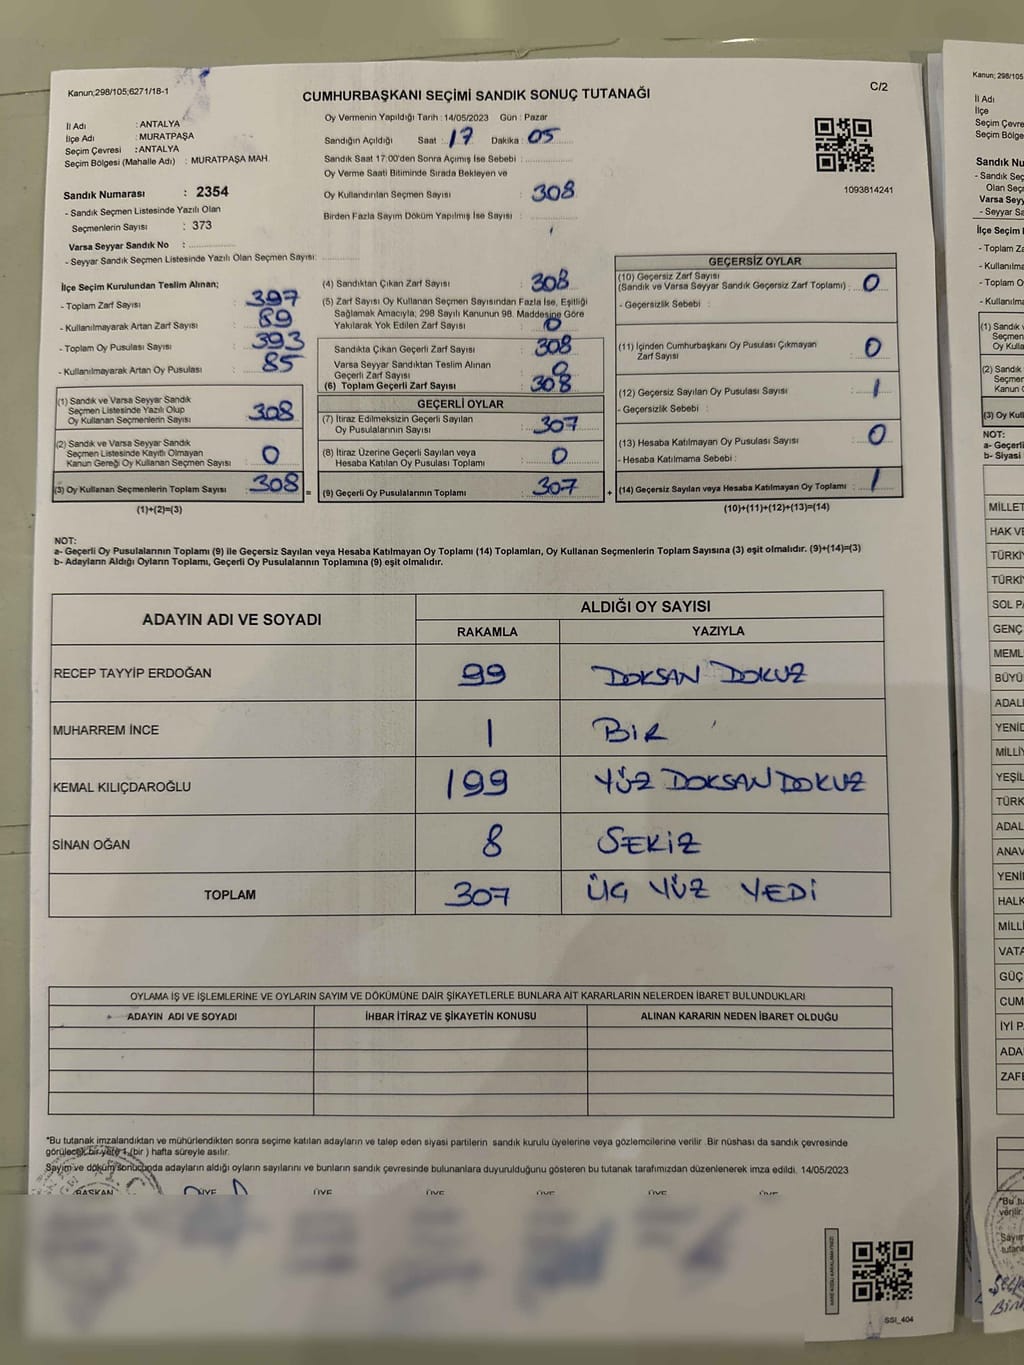 Kanun;298/105;6271/18-1
C/2
CUMHURBAŞKANI SEÇİMİ SANDIK SONUÇ TUTANAĞI
İl Adı : ANTALYA
İlçe Adı : MURATPAŞA
Seçim Çevresi : ANTALYA
Seçim Bölgesi (Mahalle Adı) : MURATPAŞA MAH.
Sandık Numarası : 2354
- Sandık Seçmen Listesinde Yazılı Olan
Seçmenlerin Sayısı : 373
Varsa Seyyar Sandık No :
- Seyyar Sandık Seçmen Listesinde Yazılı Olan Seçmen Sayısı:
Oy Vermenin Yapıldığı Tarih : 14/05/2023 Gün : Pazar
Sandığın Açıldığı Saat : 17 Dakika : 05
Sandık Saat 17:00'den Sonra Açımış İse Sebebi :
Oy Verme Saati Bitiminde Sırada Bekleyen ve
Oy Kullandırılan Seçmen Sayısı : 308
Birden Fazla Sayım Döküm Yapılmış İse Sayısı :
1093814241
İlçe Seçim Kurulundan Teslim Alınan;
- Toplam Zarf Sayısı : 397
- Kullanılmayarak Artan Zarf Sayısı : 89
- Toplam Oy Pusulası Sayısı : 393
- Kullanılmayarak Artan Oy Pusulası : 85
(1) Sandık ve Varsa Seyyar Sandık
Seçmen Listesinde Yazılı Olup
Oy Kullanan Seçmenlerin Sayısı : 308
(2) Sandık ve Varsa Seyyar Sandık
Seçmen Listesinde Kayıtlı Olmayan
Kanun Gereği Oy Kullanan Seçmen Sayısı : 0
(3) Oy Kullanan Seçmenlerin Toplam Sayısı : 308 =
(1)+(2)=(3)
(4) Sandıktan Çıkan Zarf Sayısı : 308
(5) Zarf Sayısı Oy Kullanan Seçmen Sayısından Fazla İse, Eşitliği
Sağlamak Amacıyla; 298 Sayılı Kanunun 98. Maddesine Göre
Yakılarak Yok Edilen Zarf Sayısı : 0
Sandıkta Çıkan Geçerli Zarf Sayısı : 308
Varsa Seyyar Sandıktan Teslim Alınan
Geçerli Zarf Sayısı : 0
(6) Toplam Geçerli Zarf Sayısı : 308
GEÇERLİ OYLAR
(7) İtiraz Edilmeksizin Geçerli Sayılan
Oy Pusulalarının Sayısı : 307
(8) İtiraz Üzerine Geçerli Sayılan veya
Hesaba Katılan Oy Pusulası Toplamı : 0
(9) Geçerli Oy Pusulalarının Toplamı : 307 +
GEÇERSİZ OYLAR
(10) Geçersiz Zarf Sayısı
(Sandık ve Varsa Seyyar Sandık Geçersiz Zarf Toplamı) : 0
- Geçersizlik Sebebi :
(11) İçinden Cumhurbaşkanı Oy Pusulası Çıkmayan
Zarf Sayısı : 0
(12) Geçersiz Sayılan Oy Pusulası Sayısı : 1
- Geçersizlik Sebebi :
(13) Hesaba Katılmayan Oy Pusulası Sayısı : 0
- Hesaba Katılmama Sebebi :
(14) Geçersiz Sayılan veya Hesaba Katılmayan Oy Toplamı : 1
(10)+(11)+(12)+(13)=(14)
NOT:
a- Geçerli Oy Pusulalarının Toplamı (9) ile Geçersiz Sayılan veya Hesaba Katılmayan Oy Toplamı (14) Toplamları, Oy Kullanan Seçmenlerin Toplam Sayısına (3) eşit olmalıdır. (9)+(14)=(3)
b- Adayların Aldığı Oyların Toplamı, Geçerli Oy Pusulalarının Toplamına (9) eşit olmalıdır.
ADAYIN ADI VE SOYADI ALDIĞI OY SAYISI
RAKAMLA YAZIYLA
RECEP TAYYİP ERDOĞAN 99 DOKSAN DOKUZ
MUHARREM İNCE 1 BİR
KEMAL KILIÇDAROĞLU 199 YÜZ DOKSAN DOKUZ
SİNAN OĞAN 8 SEKİZ
TOPLAM 307 ÜÇ YÜZ YEDİ
OYLAMA İŞ VE İŞLEMLERİNE VE OYLARIN SAYIM VE DÖKÜMÜNE DAİR ŞİKAYETLERLE BUNLARA AİT KARARLARIN NELERDEN İBARET BULUNDUKLARI
ADAYIN ADI VE SOYADI İHBAR İTİRAZ VE ŞİKAYETİN KONUSU ALINAN KARARIN NEDEN İBARET OLDUĞU
*Bu tutanak imzalandıktan ve mühürlendikten sonra seçime katılan adayların ve talep eden siyasi partilerin sandık kurulu üyelerine veya gözlemcilerine verilir .Bir nüshası da sandık çevresinde
görülecek bir yere 1 (bir ) hafta süreyle asılır.
Sayım ve döküm sonucunda adayların aldığı oyların sayılarını ve bunların sandık çevresinde bulunanlara duyurulduğunu gösteren bu tutanak tarafımızdan düzenlenerek imza edildi. 14/05/2023
BAŞKAN ÜYE ÜYE ÜYE ÜYE ÜYE ÜYE
SSI_404
Kanun; 298/105
İl Adı
İlçe
Seçim Çevre
Seçim Bölge
Sandık Nu
- Sandık Seç
Olan Seç
Varsa Seyy
- Seyyar S
İlçe Seçim
- Toplam Za
- Kullanılma
- Toplam O
- Kullanılma
(1) Sandık v
Seçmen
Oy Kulla
(2) Sandık
Seçmen
Kanun G
(3) Oy Kull
NOT:
a- Geçerli
b- Siyasi
MİLLET
HAK VE
TÜRKİY
TÜRKİ
SOL PA
GENÇ
MEML
BÜYÜ
ADAL
YENİD
MİLLİY
YEŞİL
TÜRK
ADAL
ANAV
YENİ
HALK
MİLLİ
VATA
GÜÇ
CUM
İYİ P
ADA
ZAFE
*Bu tu
verilir.
Sayım
tutana